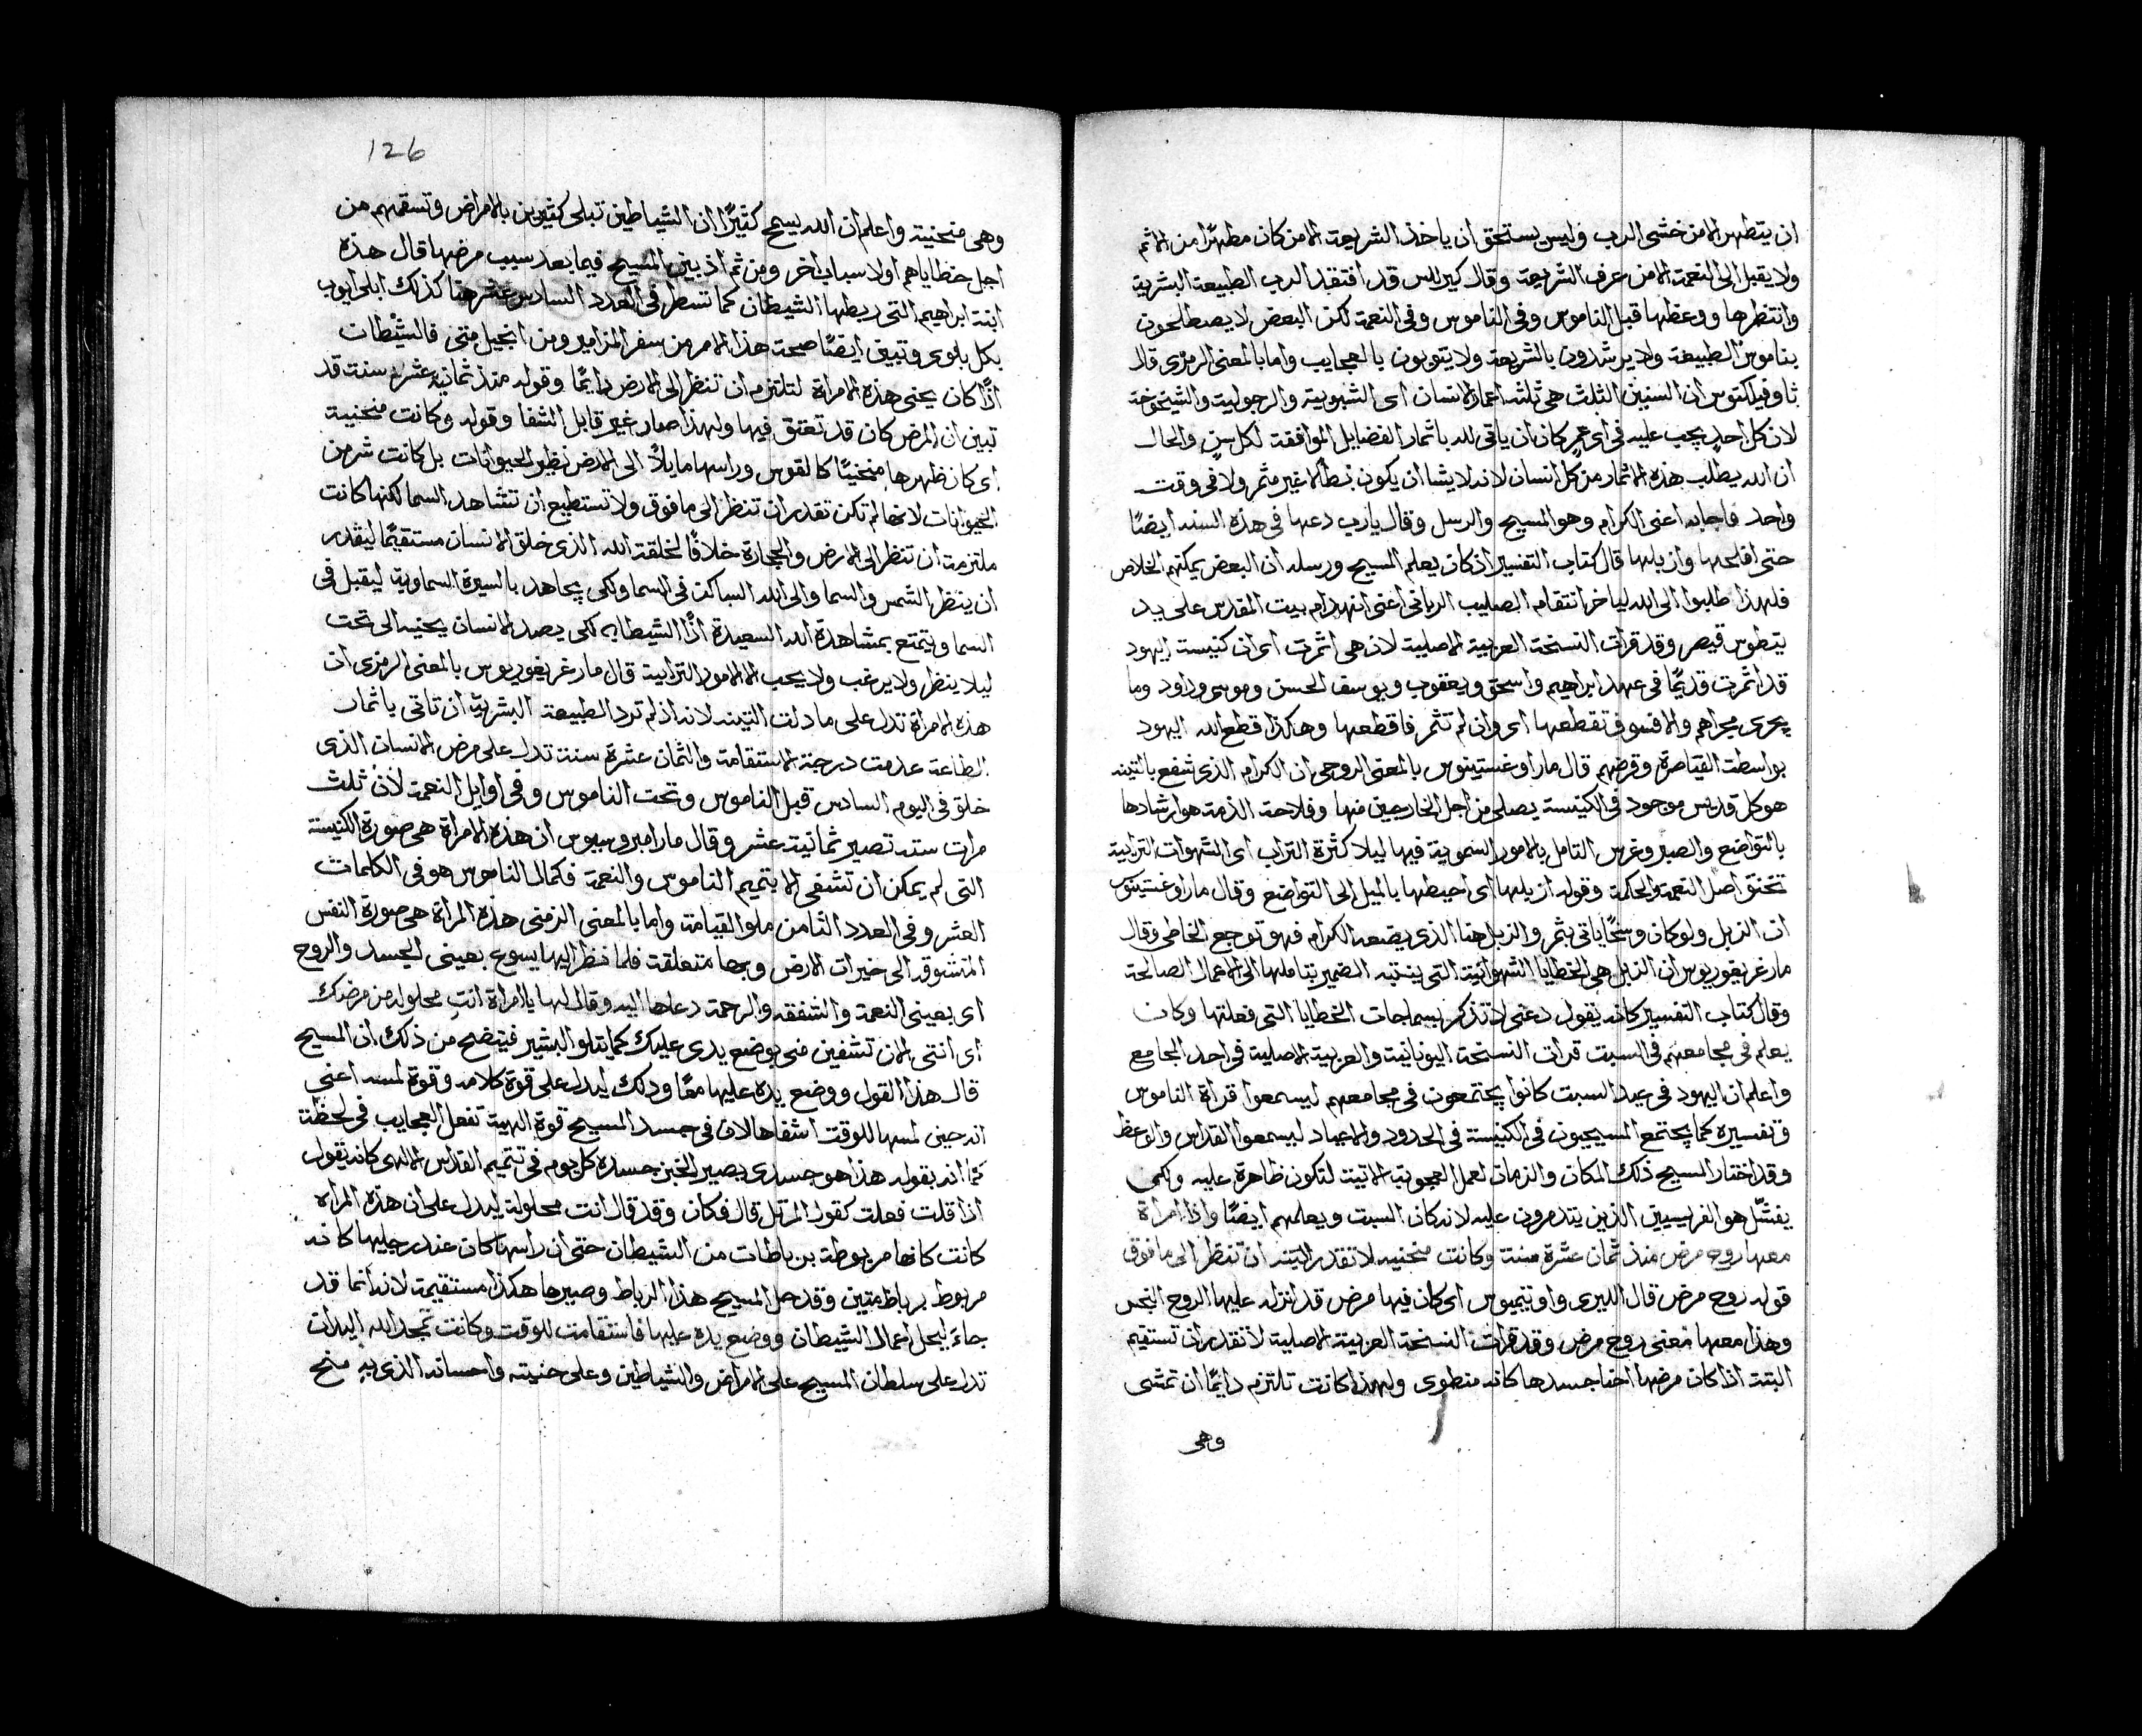 ان يتطهر الا من خشى الرب وليس يستحق ان ياخذ الشريعة الا من كان مطهرًا من الاثم
ولا يقبل الى النعمة الا من عرف الشريعة وقال كيرللس قد افتقد الرب الطبيعة البشرية
وانتظرها ووعظها قبل الناموس وفى الناموس وفى النعمة لكن البعض لا يصطلحون
بناموس الطبيعة ولا يرشدون بالشريعة ولا يتوبون بالعجايب واما بالمعنى الرمزى قال
ثاوفيلكتوس ان السنين الثلث هى ثلثه اعمار الانسان اى الشبوبية والرجولية والشيخوخة
لان كل احدٍ يجب عليه فى اى عمرٍ كان ان ياتى لله باثمار الفضايل الموافقة لكل سنٍ والحال
ان الله يطلب هذه الاثمار من كل انسان لانه لا يشا ان يكون بطالًا غير مثمر ولا فى وقت
واحد فاجابه اعنى الكرام وهو المسيح والرسل وقال يارب دعها فى هذه السنه ايضًا
حتى افلحها وازبلها قال كتاب التفسير اذ كان يعلم المسيح ورسله ان البعض يمكنهم الخلاص
فلهذا طلبوا الى الله لياخر انتقام الصليب الربانى اعنى انهدام بيت المقدس على يد
يتطوس قيصر وقد قرات النسخة العربية الاصلية لان هى اثمرت اى ان كنيسة اليهود
قد اثمرت قديمًا فى عهد ابراهيم واسحق ويعقوب ويوسف الحسن وموسى وداود وما
يجرى مجراهم والا فسوف تقطعها اى وان لم تثمر فاقطعها وهكذا قطع الله اليهود
بواسطة القياصرة وقرضهم قال مار اوغستينوس بالمعنى الروحى ان الكرام الذى شفع بالتينه
هو كل قديس موجود فى الكنيسة يصلى من اجل الخارجين منها وفلاحة الذمة هو ارشادها
بالتواضع والصبر وغرس التامل بالامور السموية فيها ليلا كثرة التراب اى الشهوات الترابية
تخنق اصل النعمة والحكمة وقوله ازبلها اى احبطها بالميل الى التواضع وقال مار اوغستينوس
ان الزبل ولو كان وسخًا ياتى بثمر والزبل هنا الذى يضعه الكرام فهو توجع الخاطى وقال
مار غريغوريوس ان الزبل هى الخطايا الشهوانية التى ينتبه الضمير بتاملها الى الاعمال الصالحة
وقال كتاب التفسير كانه يقول دعنى لاتذكر بسماجات الخطايا التى فعلتها وكان
يعلم فى مجامعهم فى السبت قرات النسخة اليونانية والعربية الاصلية فى احد المجامع
واعلم ان اليهود فى عيد السبت كانوا يجتمعون فى مجامعهم ليسمعوا قراة الناموس
وتفسيره كما يجتمع المسيحيون فى الكنيسة فى الحدود والاعياد ليسمعوا القداس والوعظ
وقد اختار المسيح ذلك المكان والزمان لعمل العجوبة الاتية لتكون ظاهرة عليه ولكى
يفشّل هو الفريسيين الذين يتدمرون عليه لانه كان السبت ويعلمهم ايضًا واذا امراة
معها روح مرض منذ ثمان عشرة سنة وكانت منحنيه لا تقدر البته ان تنظر الى ما فوق
قوله روح مرض قال الليرى واوتيميوس اى كان فيها مرض قد انزله عليها الروح النجس
وهذا معها معنى روح مرض وقد قرات النسخة العربية الاصلية لا تقدر ان تستقيم
البتة اذ كان مرضها احنا جسدها كانه منطوى ولهذا كانت تلتزم دايمًا ان تمشى
وهى
126
وهى منحنية واعلم ان الله يسمح كثيرًا ان الشياطين تبلى كثيرين بالامراض وتسقمهم من
اجل خطاياهم او لاسباب اخر ومن ثم اذ يبين المسيح فيما بعد سبب مرضها قال هذه
ابنة ابراهيم التى ربطها الشيطان كما تسطر فى العدد السادس عشر هنا كذلك ابلى ايوب
بكل بلوى وتبين ايضًا صحة هذا الامر من سفر المزامير ومن انجيل متى فالشيطان
اذًا كان يحنى هذه الامراة لتلتزم ان تنظر الى الارض دايمًا وقوله منذ ثمانية عشر سنة قد
تبين ان المرض كان قد تعتق فيها ولهذا صار غير قابل الشفا وقوله وكانت منحنية
اى كان ظهرها منحنيًا كالقوس وراسها مايلًا الى الارض نظير الحيوانات بل كانت شر من
الحيوانات لانها لم تكن تقدر ان تنظر الى ما فوق ولا تستطيع ان تشاهد السما لكنها كانت
ملتزمة ان تنظر الى الارض والحجارة خلافًا لخلقة الله الذى خلق الانسان مستقيمًا ليقدر
ان ينظر الشمس والسما والى الله الساكن فى السما ولكى يجاهد بالسيرة السماوية ليقبل فى
السما ويتمتع بمشاهدة الله السعيدة اذًا الشيطان لكى يصد الانسان يحنيه الى تحت
ليلا ينظر ولا يرغب ولا يحب الا الامور الترابية قال مار غريغوريوس بالمعنى الرمزى ان
هذه الامراة تدل على ما دلت التينه لانه اذ لم ترد الطبيعة البشرية ان تاتى باثمار
الطاعة عدمت درجة الاستقامة والثمان عشرة سنة تدل على مرض الانسان الذى
خلق فى اليوم السادس قبل الناموس وتحت الناموس وفى اوايل النعمة لان ثلث
مرات سته تصير ثمانية عشر وقال مار امبروسيوس ان هذه الامراة هى صورة الكنيسة
التى لم يمكن ان تشفى الا بتميم الناموس والنعمة فكمال الناموس هو فى الكلمات
العشر وفى العدد الثامن ملو القيامة واما بالمعنى الرمزى هذه المراة هى صورة النفس
المتشوقه الى خيرات الارض وبها متعلقة فلما نظر اليها يسوع بعينى الجسد والروح
اى بعينى النعمة والشفقه والرحمة دعاها اليه وقال لها يا امراة انتِ محلوله من مرضك
اى انتى الان تشفين منى بوضع يدى عليك كما يتلو البشير فيتضح من ذلك ان المسيح
قال هذا القول ووضع يده عليها معًا وذلك ليدل على قوة كلامه وقوة لمسه اعنى
انه حين لمسها للوقت اشفاها لان فى جسد المسيح قوة الهية تفعل العجايب فى لحظة
كما انه بقوله هذا هو جسدى يصير الخبز جسده كل يوم فى تتميم القداس الالهى كانه يقول
اذا قلت فعلت كقول المرتل قال فكان وقد قال انت محلولة ليدل على ان هذه المراه
كانت كانها مربوطة برباطات من الشيطان حتى ان راسها كان عند رجليها كانه
مربوط برباط متين وقد حل المسيح هذا الرباط وصيرها هكذا مستقيمة لانه انما قد
جاء ليحل اعمال الشيطان ووضع يده عليها فاستقامت للوقت وكانت تمجد الله اليدان
تدل على سلطان المسيح على الامراض والشياطين وعلى حنيته واحسانه الذى به منح